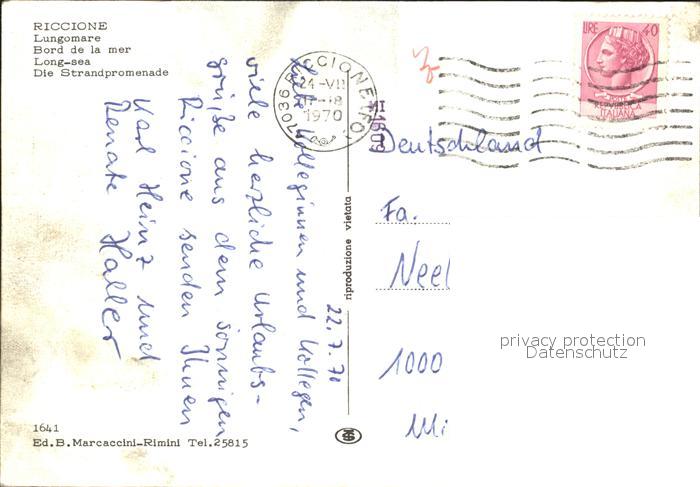 RICCIONE
Lungomare
Bord de la mer
Long-sea
Die Strandpromenade
22.7.70
Liebe Kolleginnen und Kollegen,
viele herzliche Urlaubs-
grüße aus dem sonnigen
Riccione senden Ihnen
Karl Heinz und
Renate Haller
47036 RICCIONE (FO)
24-VII
17-18
1970
LIRE 40
REPUBBLICA
ITALIANA
Deutschland
Fa.
Neel
1000
riproduzione vietata
privacy protection
Datenschutz
1641
Ed.B.Marcaccini-Rimini Tel.25815